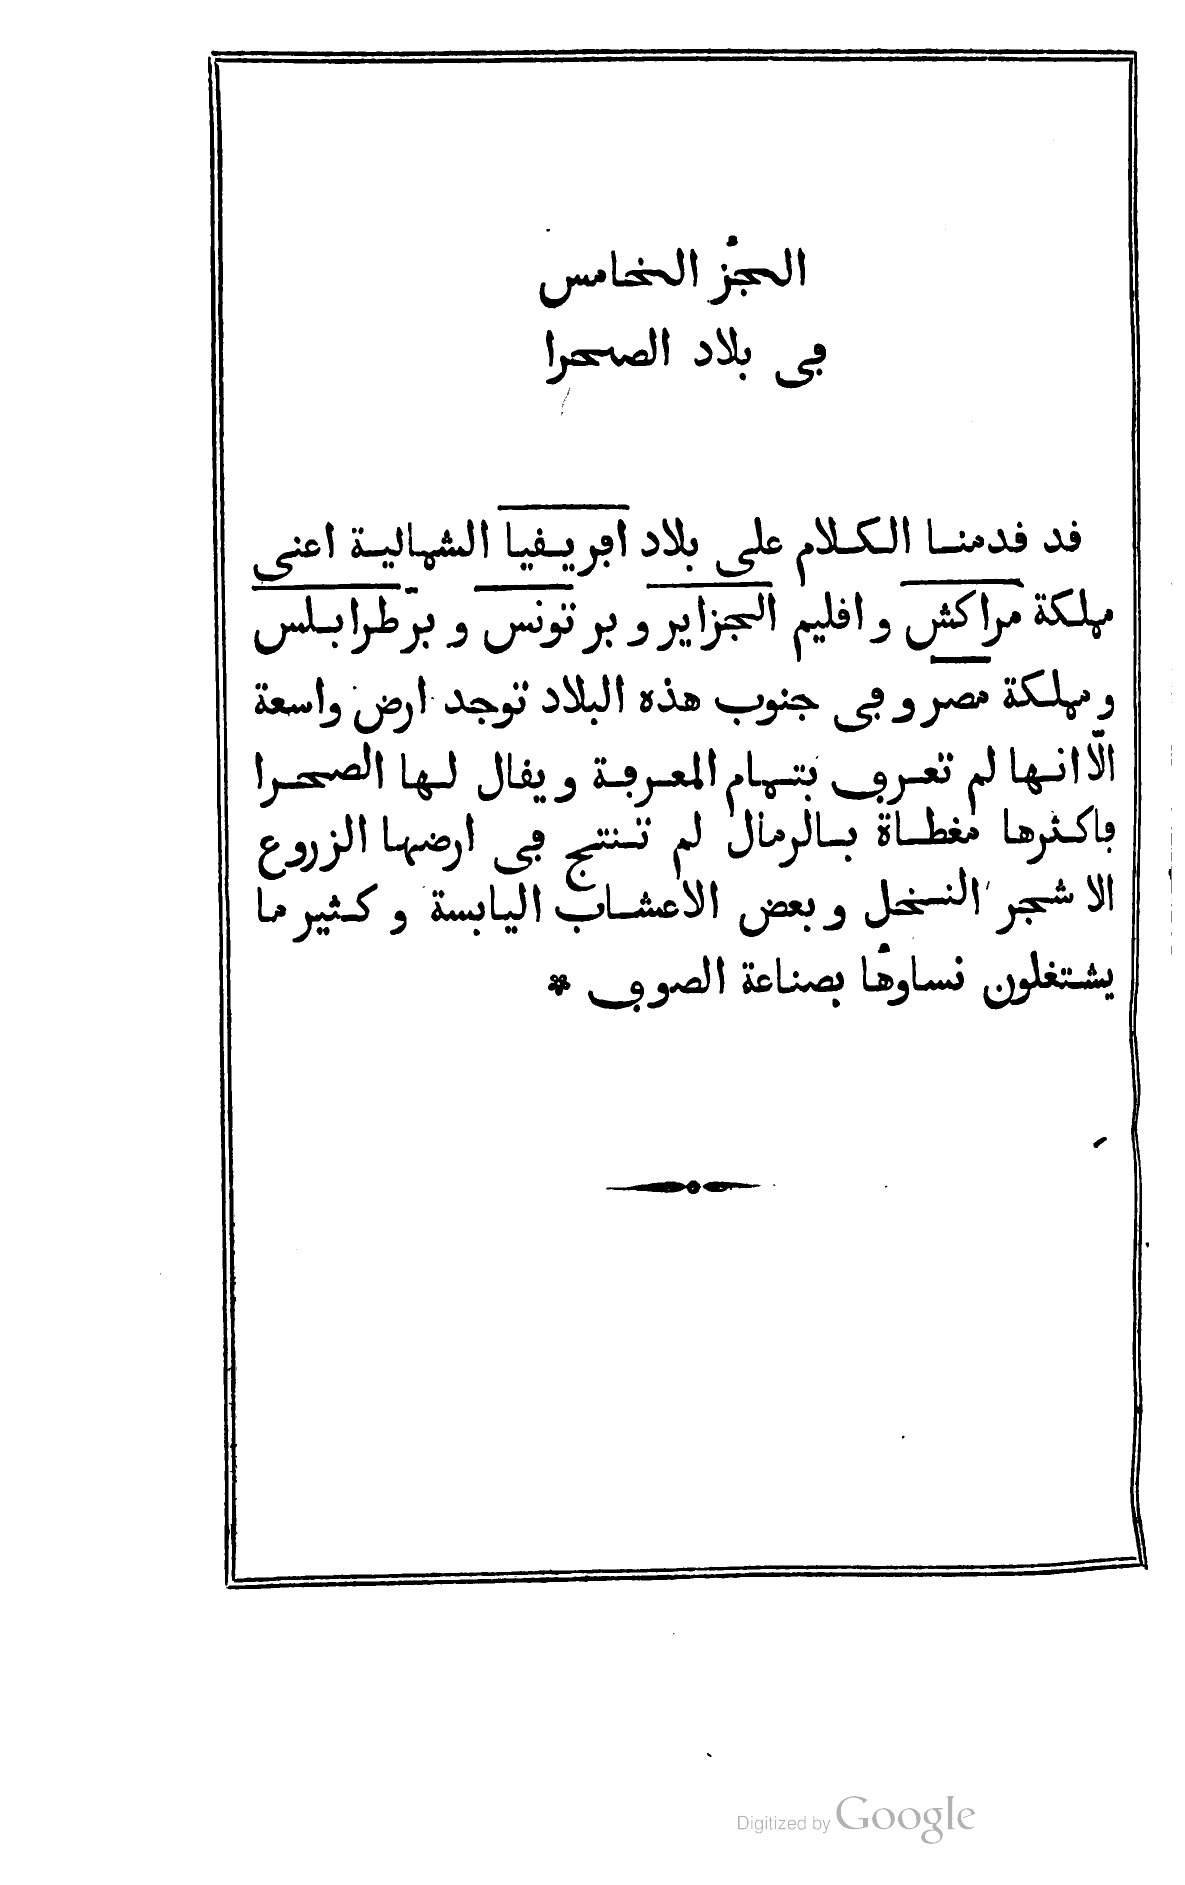 الجزُء الخامس
في بلاد الصحرا
قد قدمنا الكلام على بلاد افريقيا الشمالية اعني
مملكة مراكش و اقليم الجزاير و بر تونس و برّ طرابلس
و مملكة مصر و في جنوب هذه البلاد توجد ارض واسعة
الّا انها لم تعرف بتمام المعرفة و يقال لها الصحرا
فاكثرها مغطاة بالرمال لم تنتج في ارضها الزروع
الا شجر النخل و بعض الاعشاب اليابسة و كثير ما
يشتغلون نساوُها بصناعة الصوف *
Digitized by Google